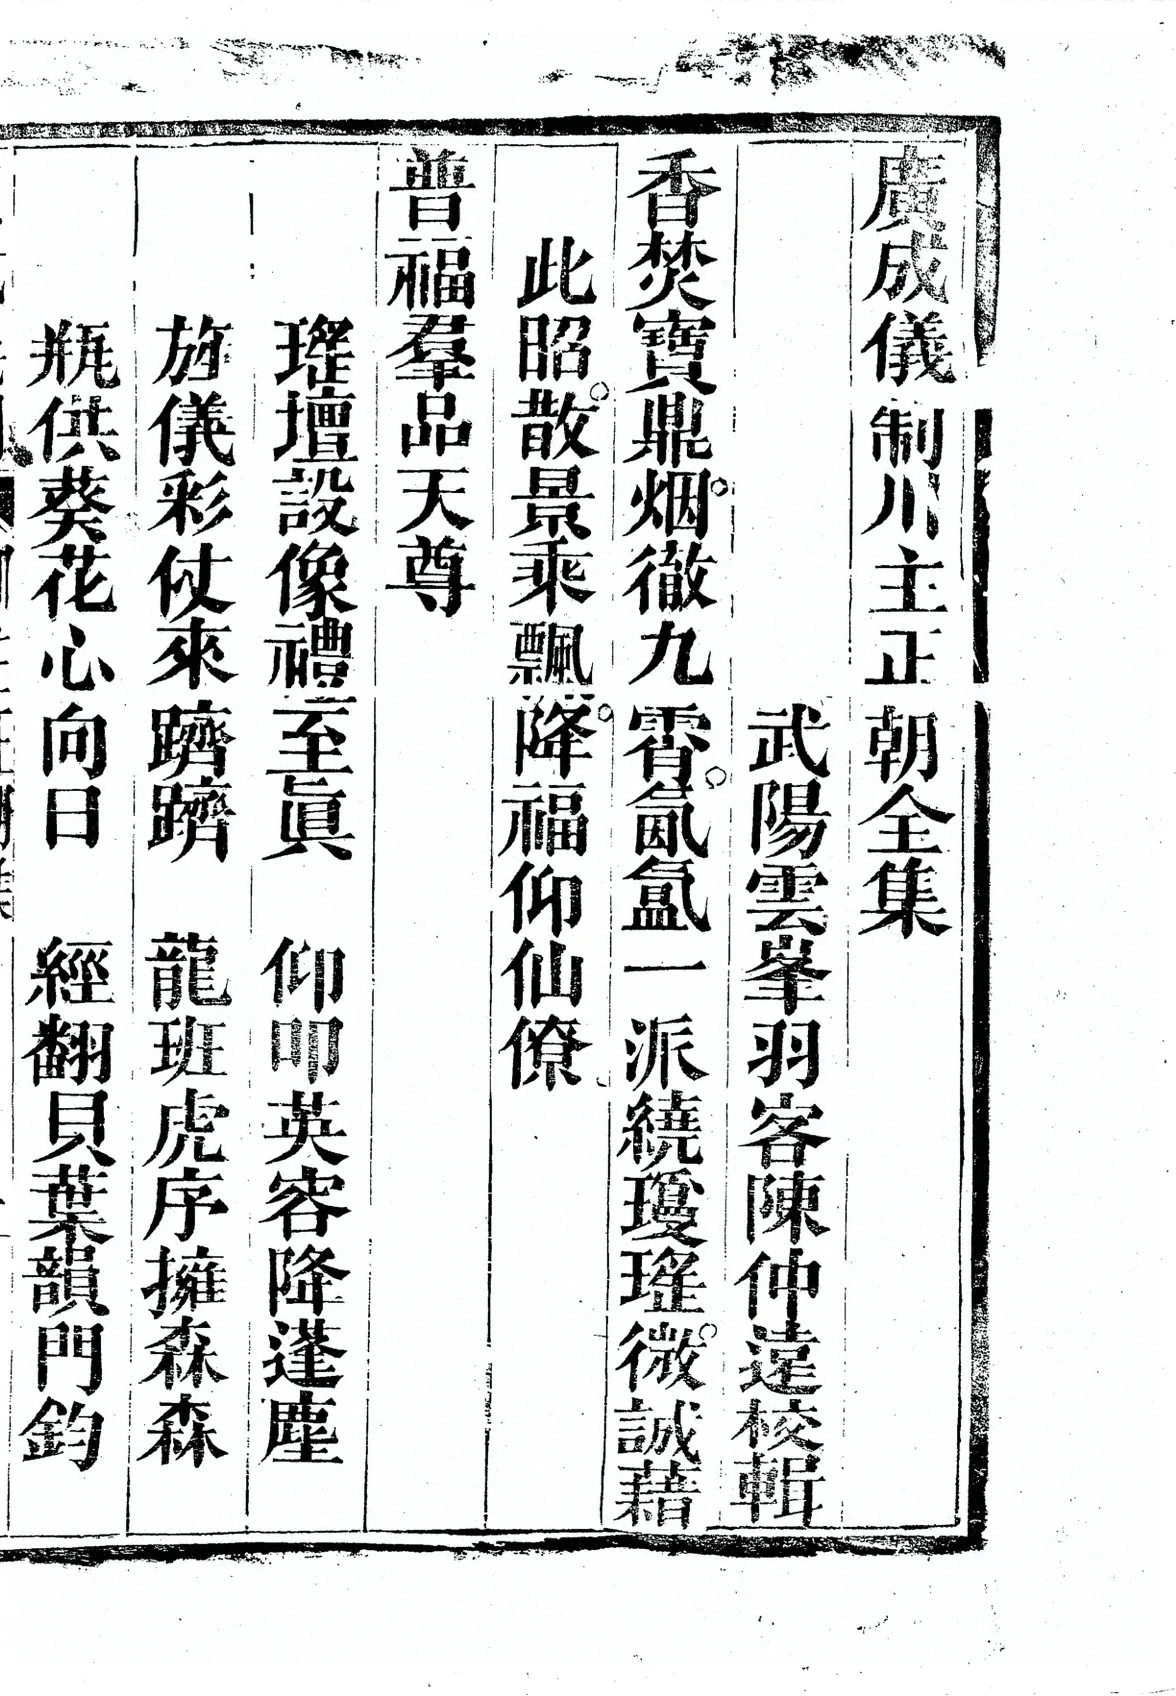 廣成儀制川主正朝全集
武陽雲峯羽客陳仲遠校輯
香焚寶鼎烟徹九霄氤氳一派繞瓊瑤微誠藉
此昭散景乘飄降福仰仙僚
普福羣品天尊
瑤壇設像禮至眞　仰叩英容降蓬塵
旌儀彩仗來躋躋　龍班虎序擁森森
瓶供葵花心向日　經翻貝葉韻門鈞